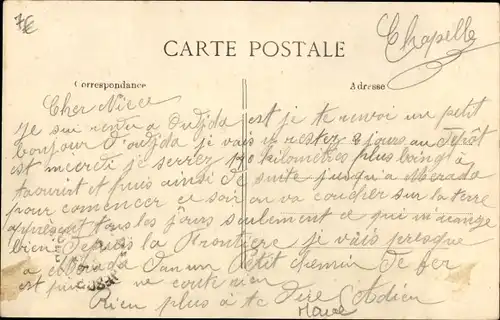 7€
Chapelle
CARTE POSTALE
Correspondance
Adresse
Cher Niece
Je sui rendu a Oudjda est je te renvoi un petit
bonjour d'oudjda je vais y rester 2 jours au Depôt
est mercredi je serrez 120 kilomètres plus loingt à
taourirt et puis ainsi de suite jusqu'a Merada
pour comencer ce soir on va coucher sur la terre
apresent tous les jours seulement ce qui m'arange
bien depuis la Frontiere je vais presque
a Merada dan un Petit chemin de fer
est puis ne coute rien
Rien plus à te dire Adieu